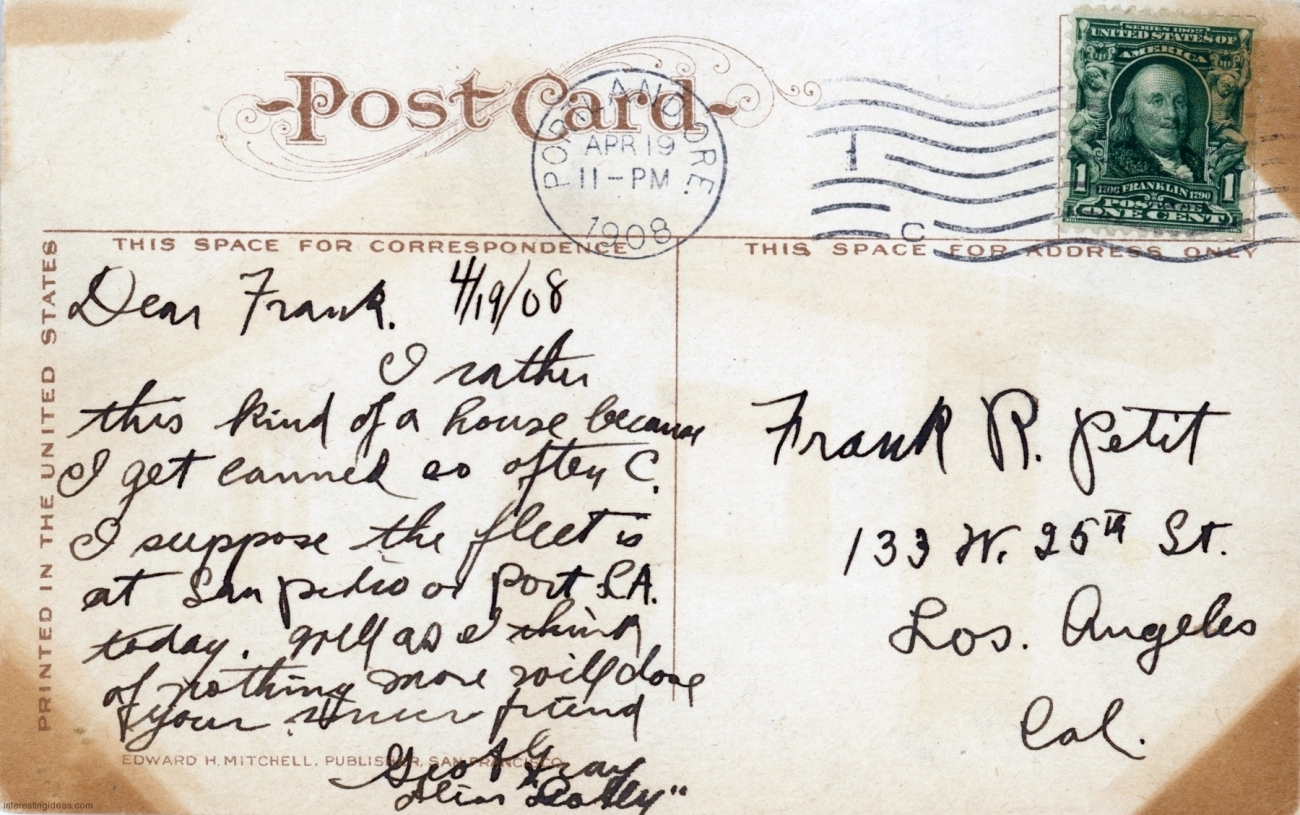 Post Card
PORTLAND ORE.
APR 19
11-PM
1908
1
C
SERIES 1902
UNITED STATES OF
AMERICA
1706 FRANKLIN 1790
1 1
POSTAGE
ONE CENT
THIS SPACE FOR CORRESPONDENCE
THIS SPACE FOR ADDRESS ONLY
PRINTED IN THE UNITED STATES
Dear Frank. 4/19/08
I rather
this kind of a house because
I get canned so often C.
I suppose the fleet is
at San pedro or port LA.
today. Well as I think
of nothing more will close
your friend
Geo A Gray
Alias
Frank R. Petit
133 W. 25th St.
Los. Angeles
Cal.
EDWARD H. MITCHELL, PUBLISHER, SAN FRANCISCO
interestingideas.com